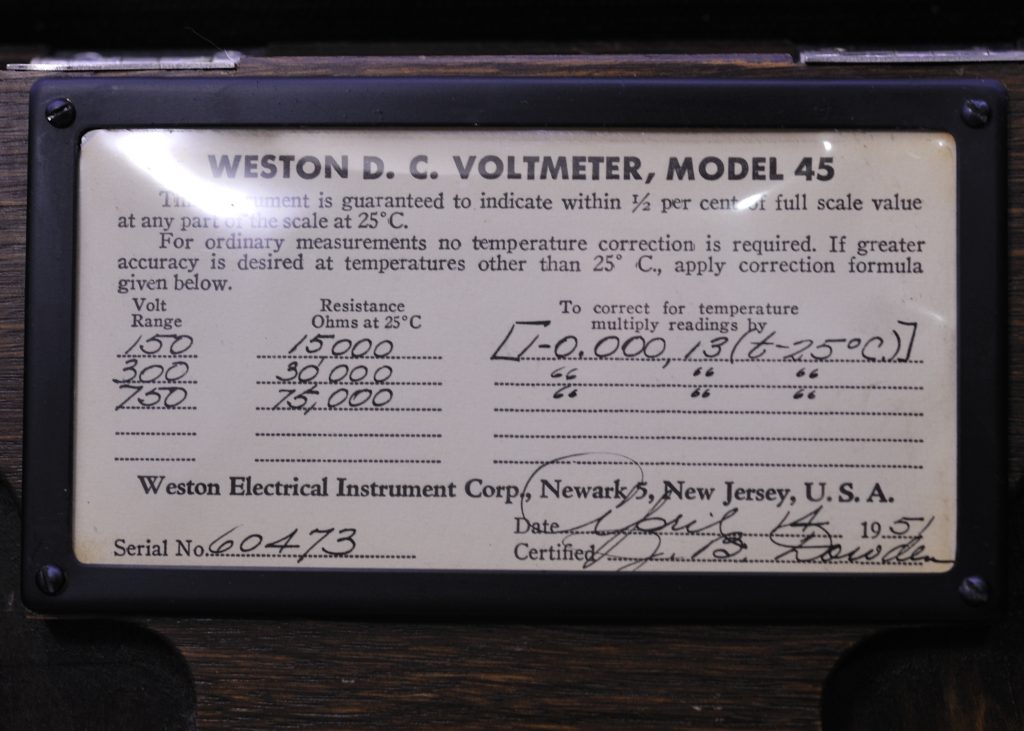 WESTON D. C. VOLTMETER, MODEL 45
This instrument is guaranteed to indicate within ½ per cent of full scale value
at any part of the scale at 25°C.
For ordinary measurements no temperature correction is required. If greater
accuracy is desired at temperatures other than 25° C., apply correction formula
given below.
Volt Range Resistance Ohms at 25°C To correct for temperature multiply readings by
150 15000 [1-0.000,13(t-25°C.)]
300 30,000 " " "
750 75,000 " " "
Weston Electrical Instrument Corp., Newark 5, New Jersey, U. S. A.
Date April 14 1951
Serial No. 60473 Certified J. B. Dowden